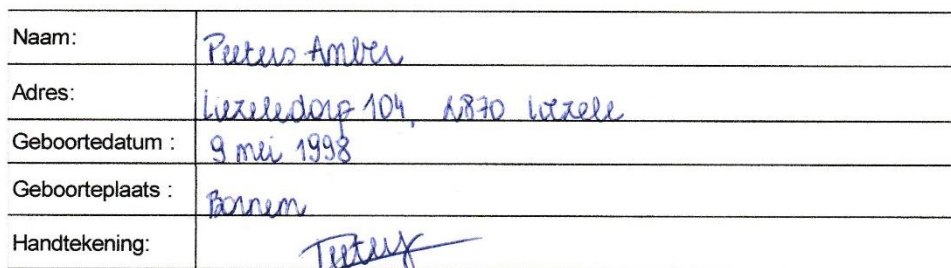 Naam: Peeters Amber
Adres: Liezeledorp 104, 2870 Liezele
Geboortedatum : 9 mei 1998
Geboorteplaats : Bornem
Handtekening: Peeters